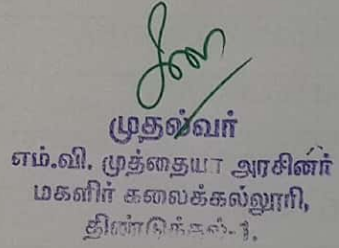 முதல்வர்
எம்.வி. முத்தையா அரசினர்
மகளிர் கலைக்கல்லூரி,
திண்டுக்கல்-1.